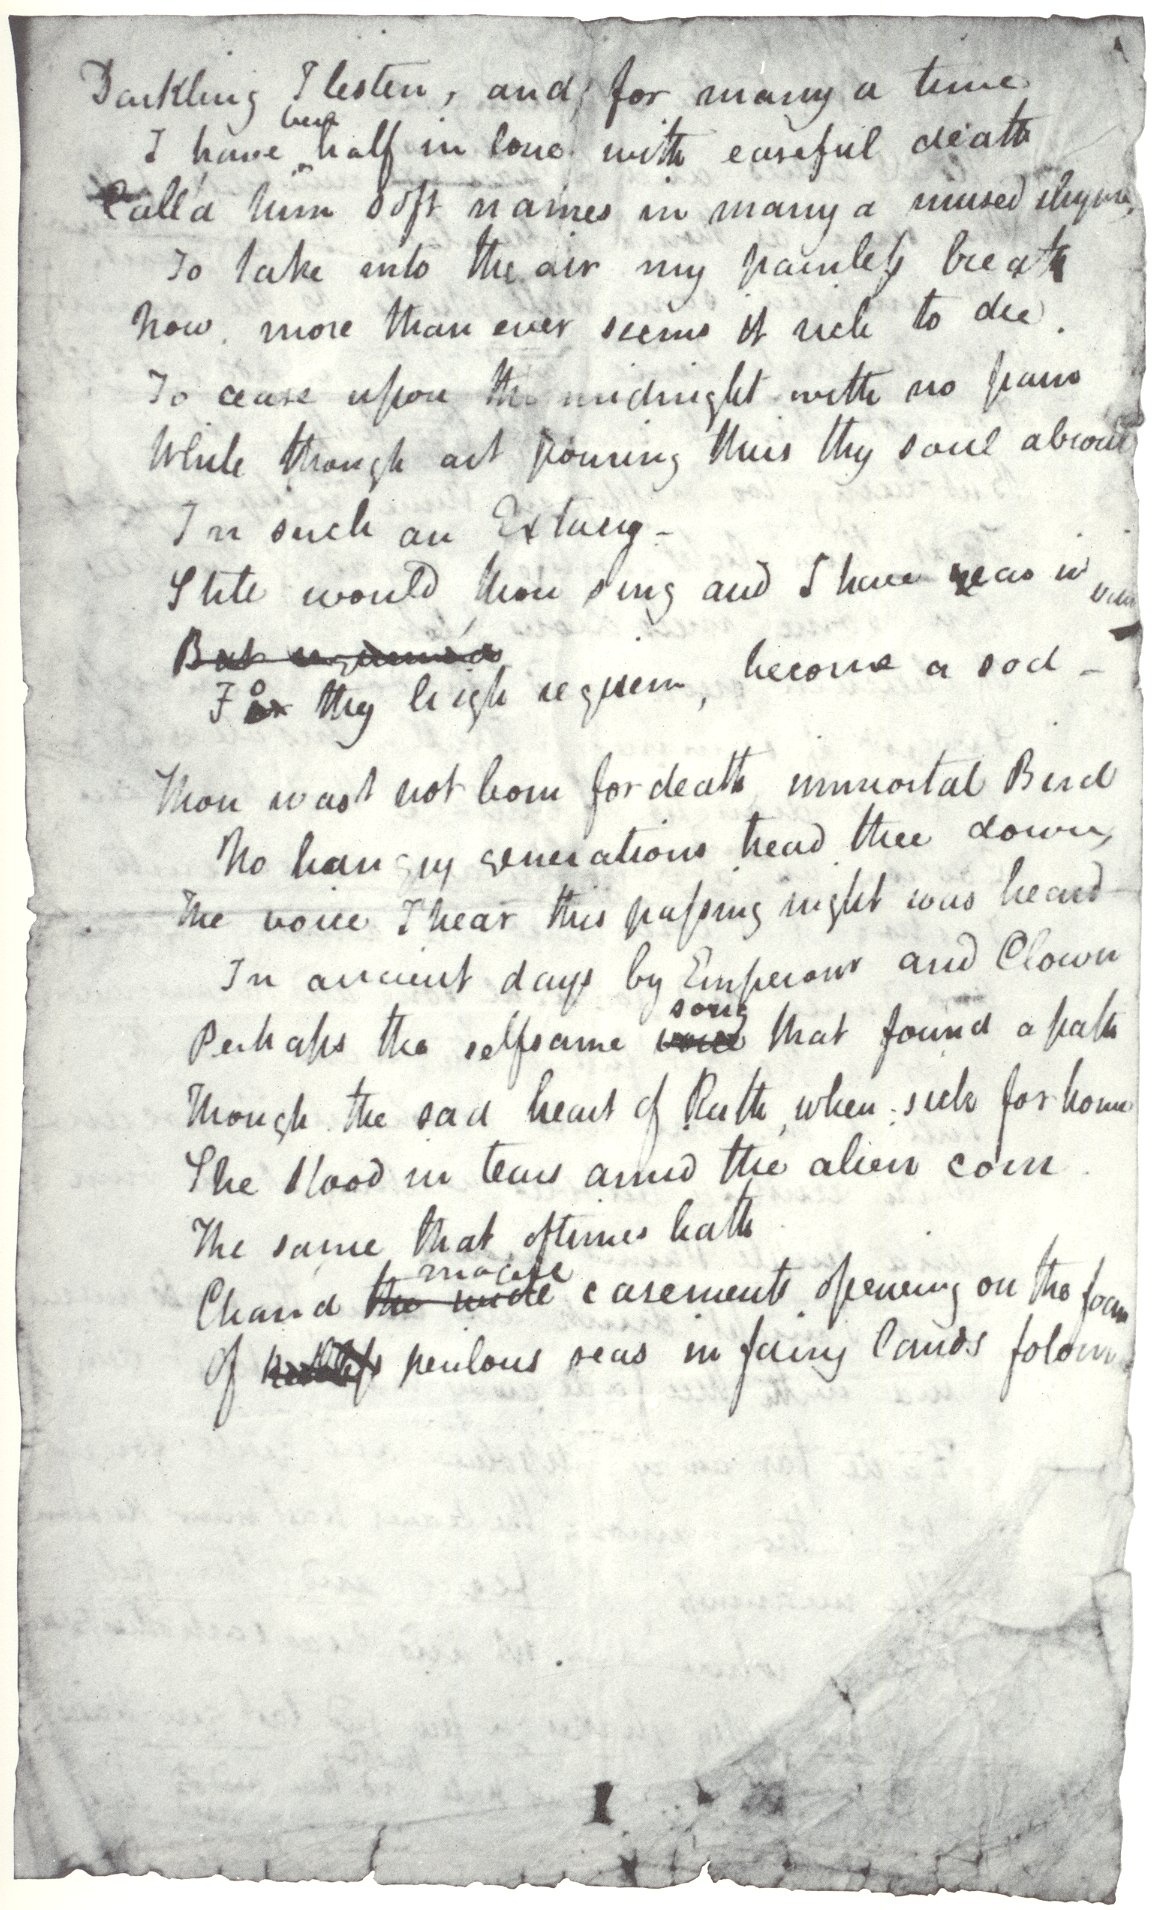 Darkling I listen, and, for many a time
I have been half in love with easeful death
Call'd him soft names in many a mused rhyme,
To take into the air my painless breath
Now, more than ever seems it rich to die.
To cease upon the midnight with no pain
While though art pouring thus thy soul abroad
In such an Extasy –
Still would thou sing and I have ears in vain
But requiem'd
For thy high requiem, become a sod –
Thou wast not born for death, immortal Bird
No hungry generations tread thee down,
The voice I hear this passing night was heard
In ancient days by Emperour and Clown
Perhaps the selfsame voice song that found a path
Though the sad heart of Ruth, when sick for home
She stood in tears amid the alien corn.
The same that oftimes hath
Charm'd the wide magic casements opening on the foam
Of perilous seas in fairy lands folorn